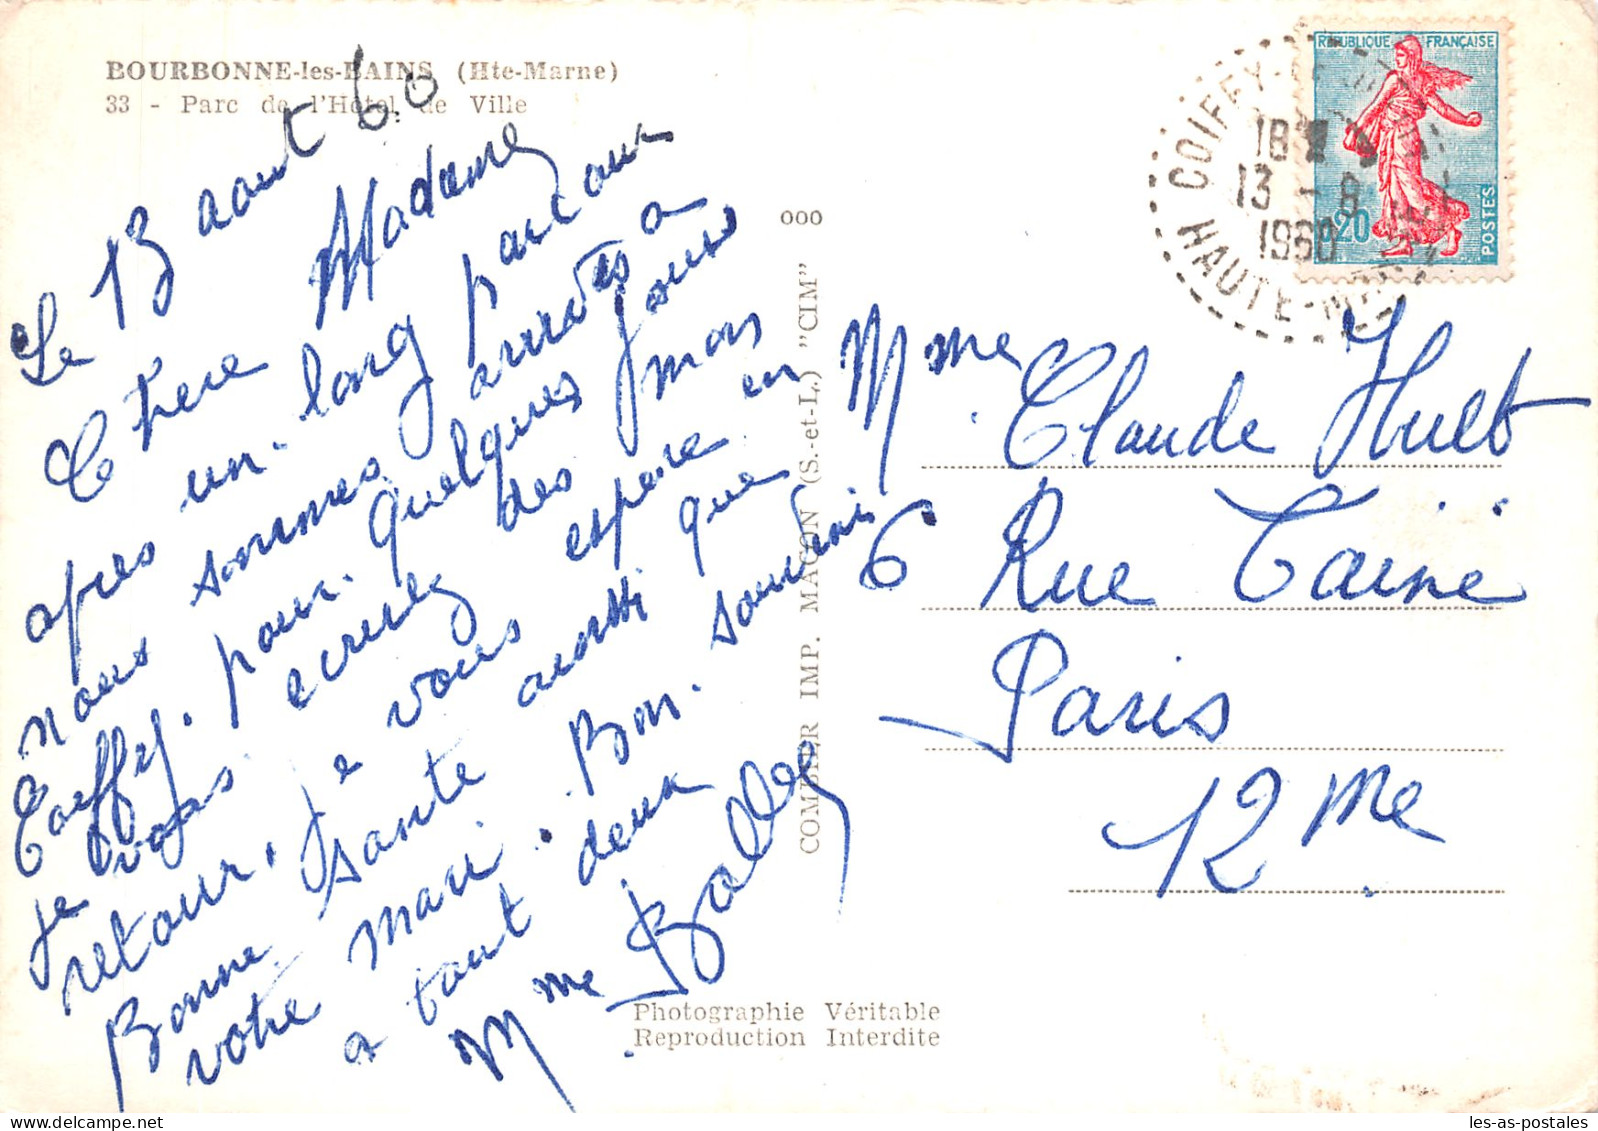 BOURBONNE-les-BAINS (Hte-Marne)
33 - Parc de l'Hôtel de Ville
Le 13 aout 60
Chere Madame
apres un long parcours
nous sommes arrivés a
Coiffy. pour quelques jours
je vous ecrirez des mon
retour, je vous espere en
Bonne sante aussi que
votre mari. Bon souvenir
a tout deux
Mme
COMBIER IMP. MACON (S.-et-L.) "CIM"
000
Photographie Véritable
Reproduction Interdite
REPUBLIQUE FRANÇAISE
0,20
POSTES
COIFFY-
18
13 - 8
1960
HAUTE-
Mme Claude Huet
6 Rue Taine
Paris
12me
les-as-postales